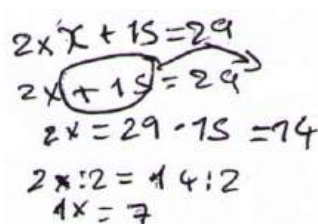 2x x + 15 = 29
2x + 15 = 29
2x = 29 - 15 = 14
2x : 2 = 14 : 2
1x = 7